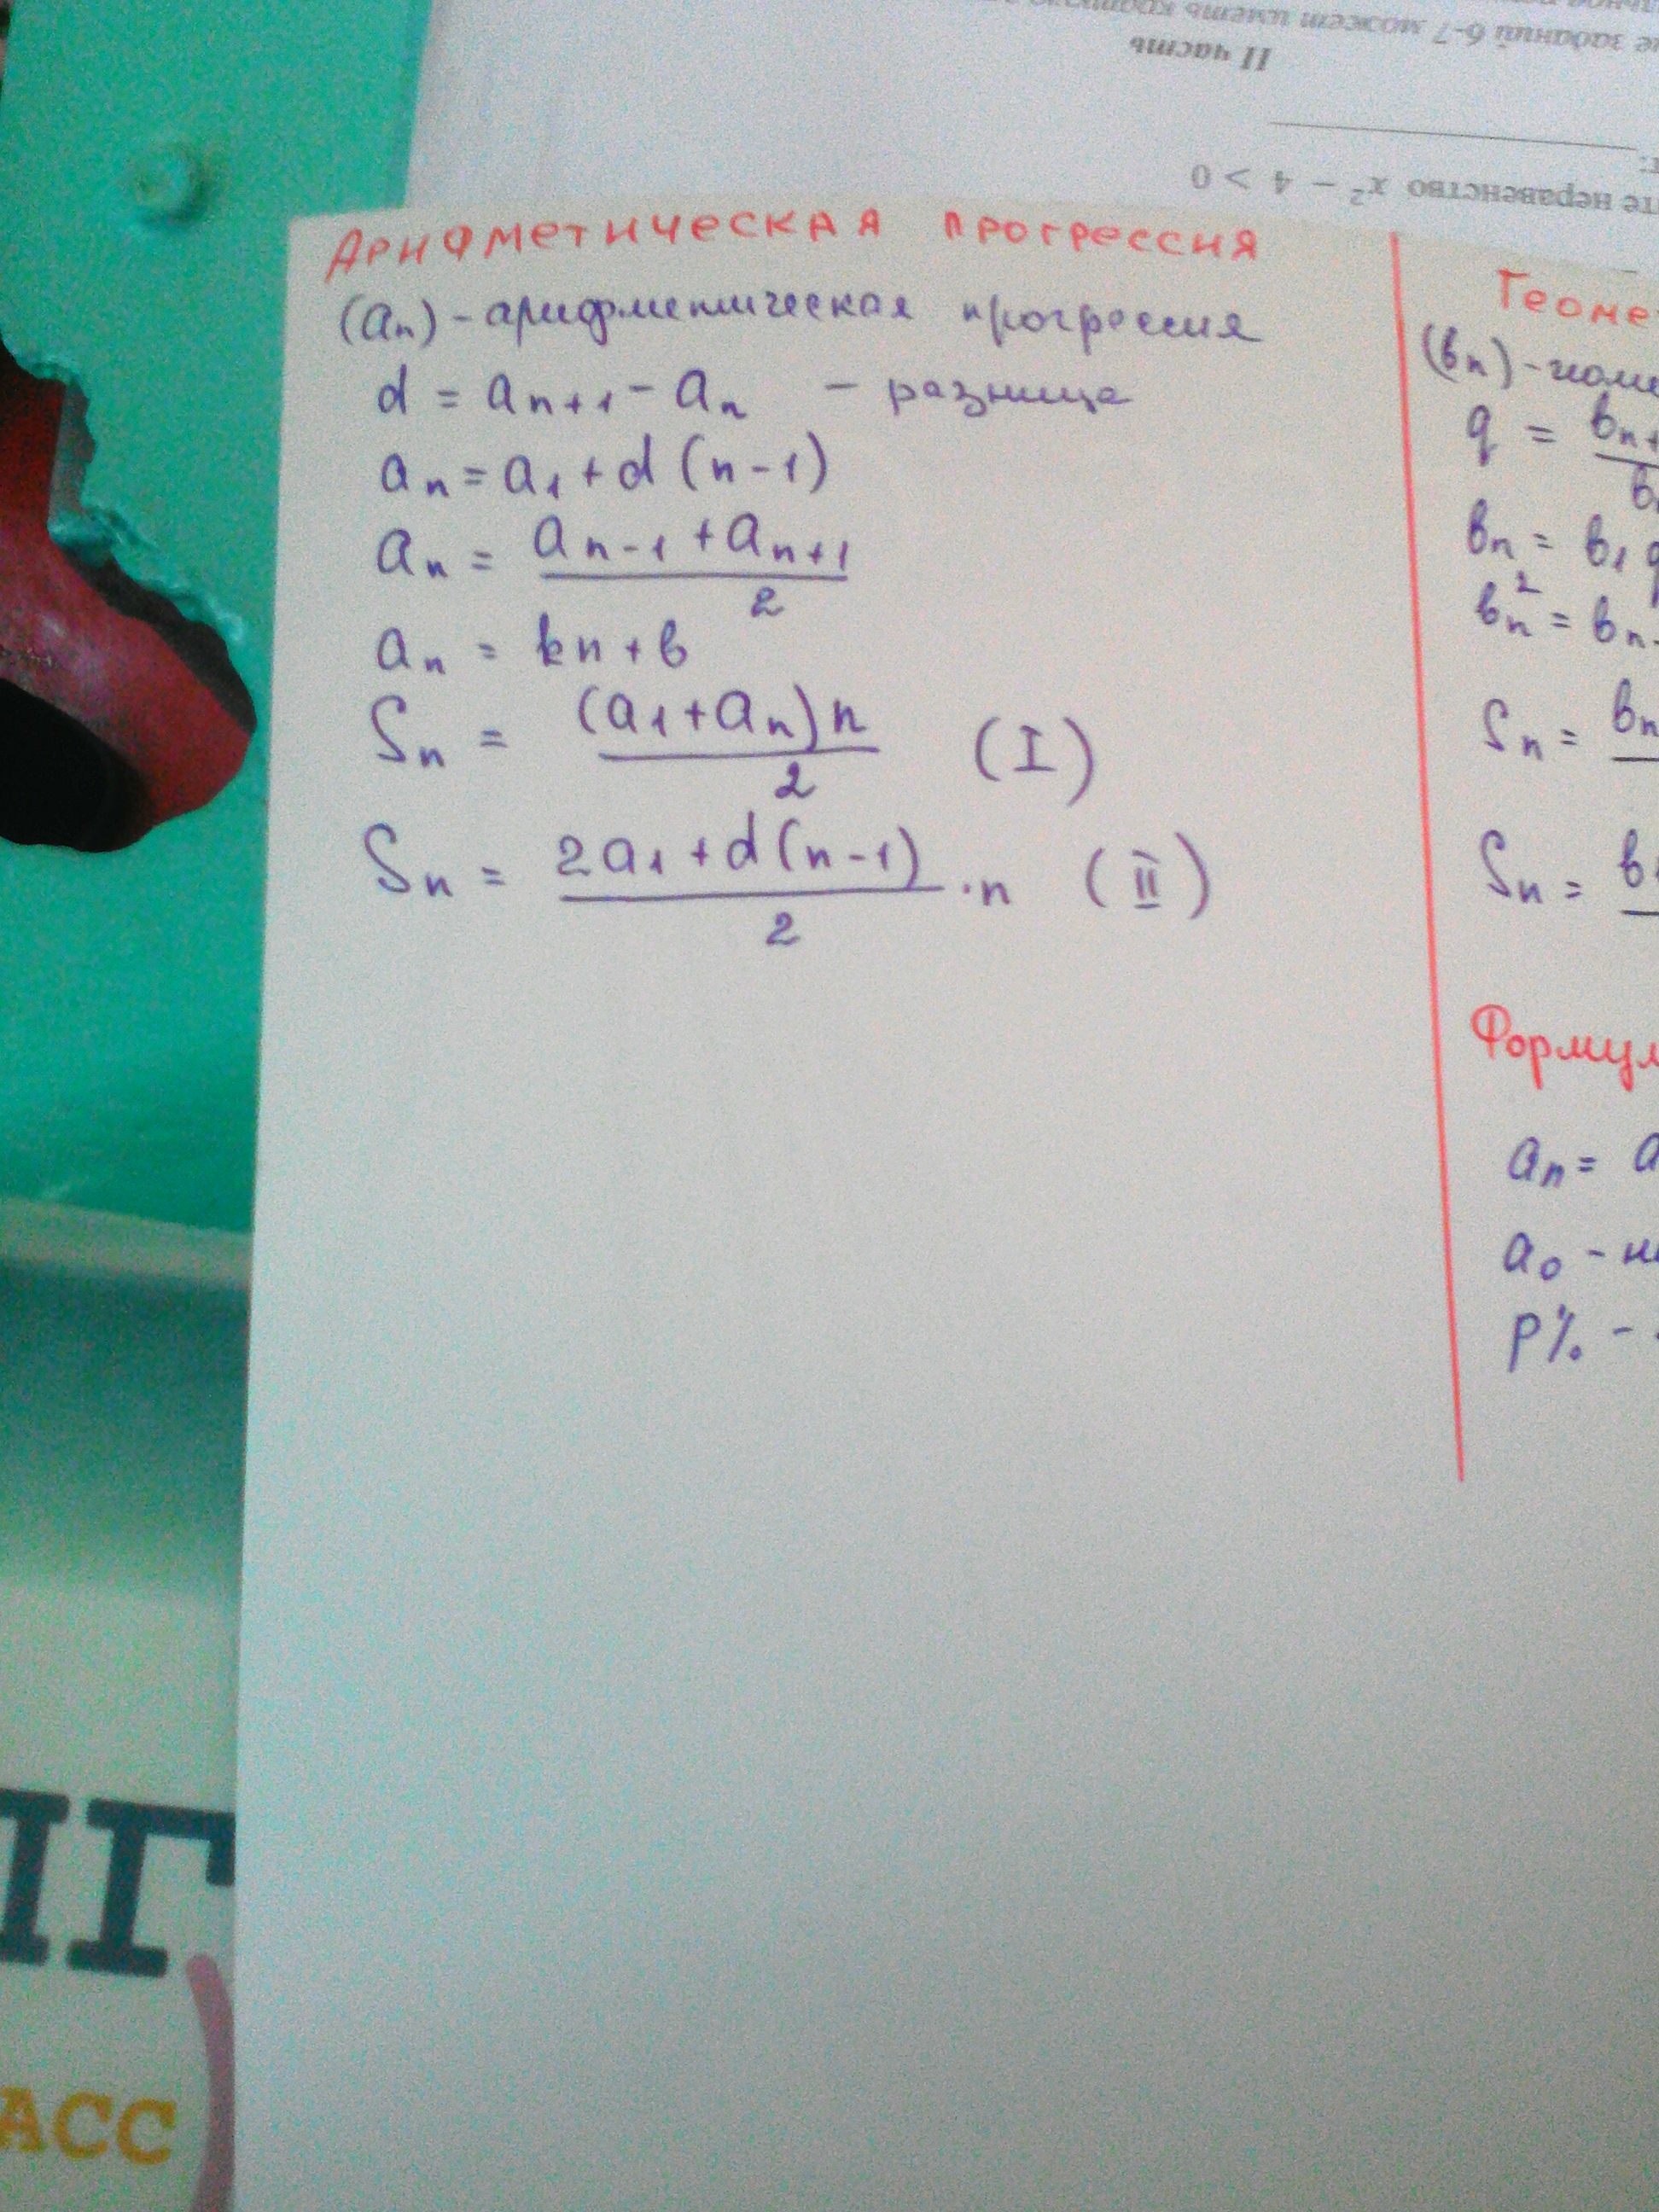 II часть
те неравенство x² − 4 > 0
Арифметическая прогрессия
(aₙ) - арифметическая прогрессия
d = aₙ₊₁ - aₙ - разница
aₙ = a₁ + d (n - 1)
aₙ = (aₙ₋₁ + aₙ₊₁) / 2
aₙ = kn + b
Sₙ = (a₁ + aₙ) n / 2 (I)
Sₙ = (2a₁ + d (n - 1)) / 2 · n (II)
Геоме
(bₙ) -
q = bₙ₊
bₙ = b₁ q
bₙ² = bₙ
Sₙ = bₙ
Sₙ = b
Формул
aₙ = a
a₀ -
p% -
АСС